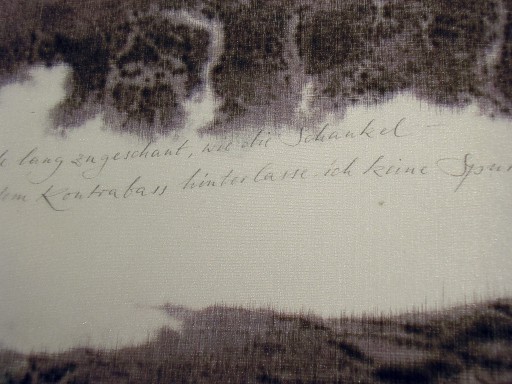 lang zugeschaut, wie die Schaukel –
dem Kontrabass hinterlasse ich keine Spur